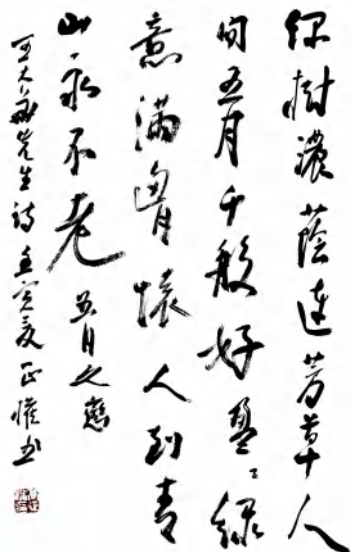 绿树浓荫连芳草人
间五月千般好盈々绿
意满胸怀人到青
山永不老 五月之恋
王大
先生诗 夏正惟书